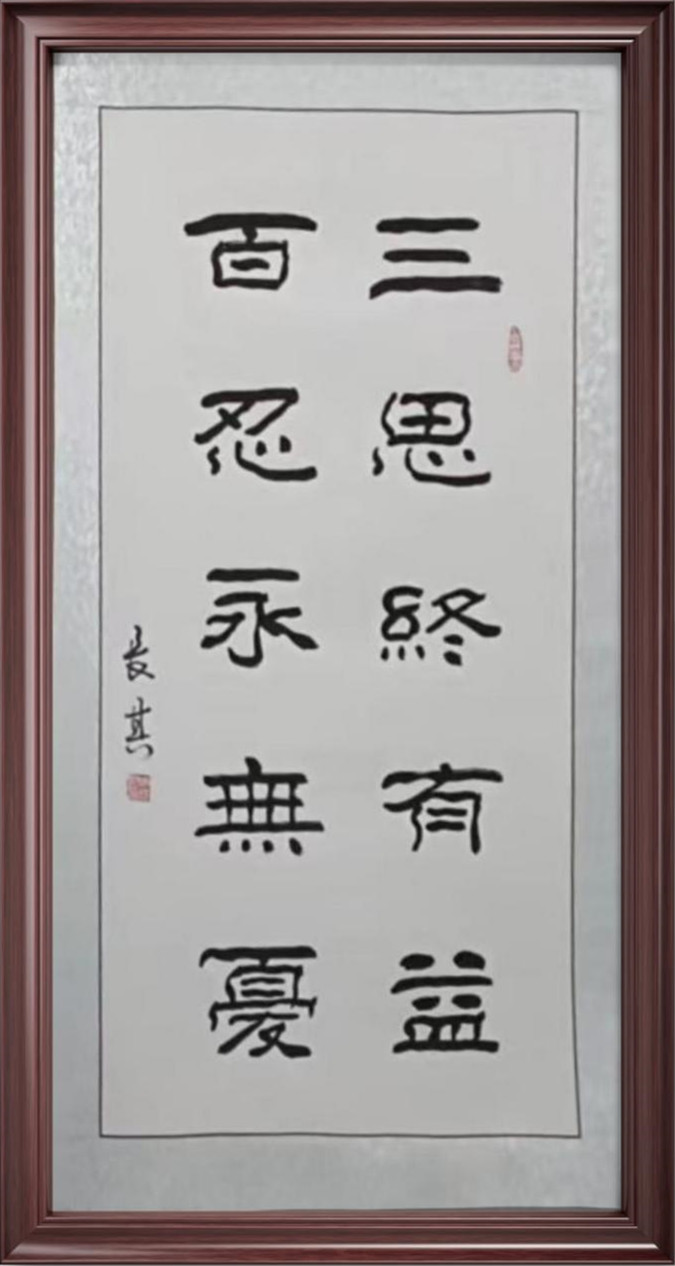 三思終有益
百忍永無憂
長其